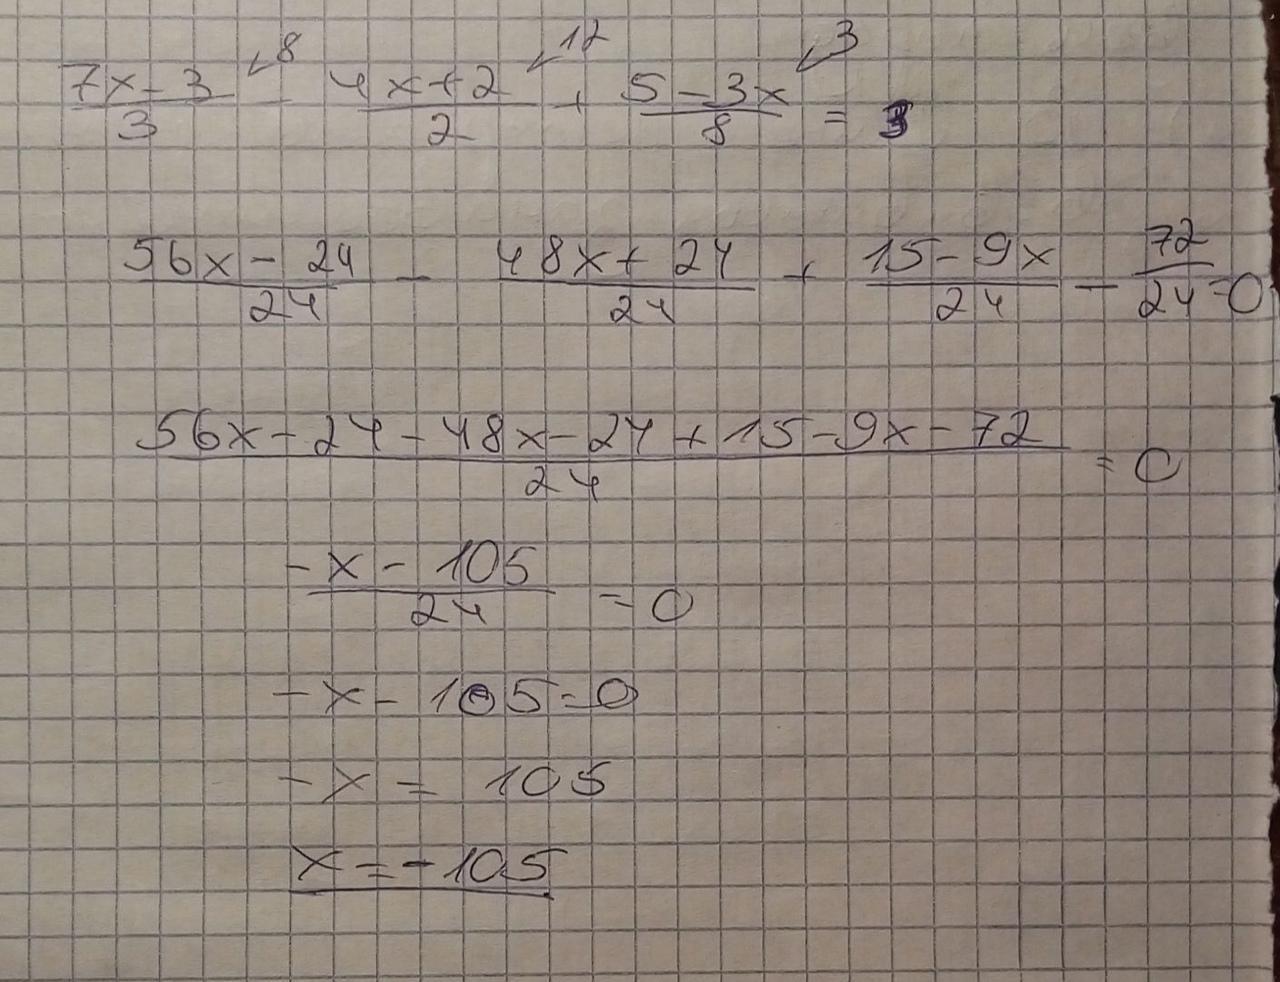 (7x-3)/3 ↙8 - (4x+2)/2 ↙12 + (5-3x)/8 ↙3 = 3
(56x-24)/24 - (48x+24)/24 + (15-9x)/24 - 72/24 = 0
(56x-24-48x-24+15-9x-72)/24 = 0
(-x-105)/24 = 0
-x-105=0
-x = 105
x = -105